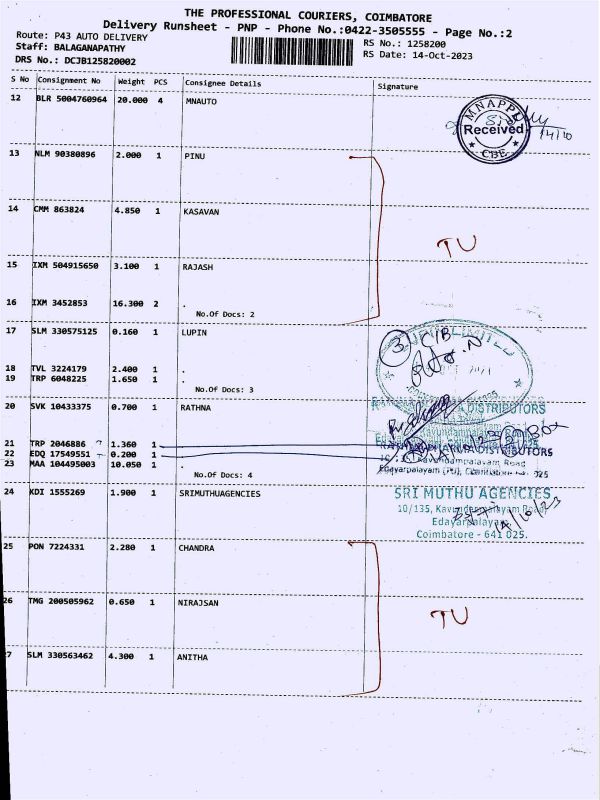 THE PROFESSIONAL COURIERS, COIMBATORE
Delivery Runsheet - PNP - Phone No.:0422-3505555 - Page No.:2
Route: P43 AUTO DELIVERY
RS No.: 1258200
Staff: BALAGANAPATHY
RS Date: 14-Oct-2023
DRS No.: DCJB125820002
S No Consignment No Weight PCS Consignee Details Signature
12 BLR 5004760964 20.000 4 MNAUTO
MNAPPL
Received
CBE
14/10
13 NLM 90380896 2.000 1 PINU
14 CMM 863824 4.850 1 KASAVAN
TU
15 IXM 504915650 3.100 1 RAJASH
16 IXM 3452853 16.300 2 .
No.Of Docs: 2
17 SLM 330575125 0.160 1 LUPIN
3
18 TVL 3224179 2.400 1 .
19 TRP 6048225 1.650 1 .
No.Of Docs: 3
20 SVK 10433375 0.700 1 RATHNA
DISTRIBUTORS
21 TRP 2046886 1.360 1
22 EDQ 17549551 0.200 1
DISTRIBUTORS
23 MAA 104495003 10.050 1 .
Kavundampalayam Road
No.Of Docs: 4
24 KDI 1555269 1.900 1 SRIMUTHUAGENCIES
SRI MUTHU AGENCIES
10/135, Kavundampalayam Road
Edayarpalayam
Coimbatore - 641 025.
14/10/23
25 PON 7224331 2.280 1 CHANDRA
26 TMG 200505962 0.650 1 NIRAJSAN
TU
27 SLM 330563462 4.300 1 ANITHA